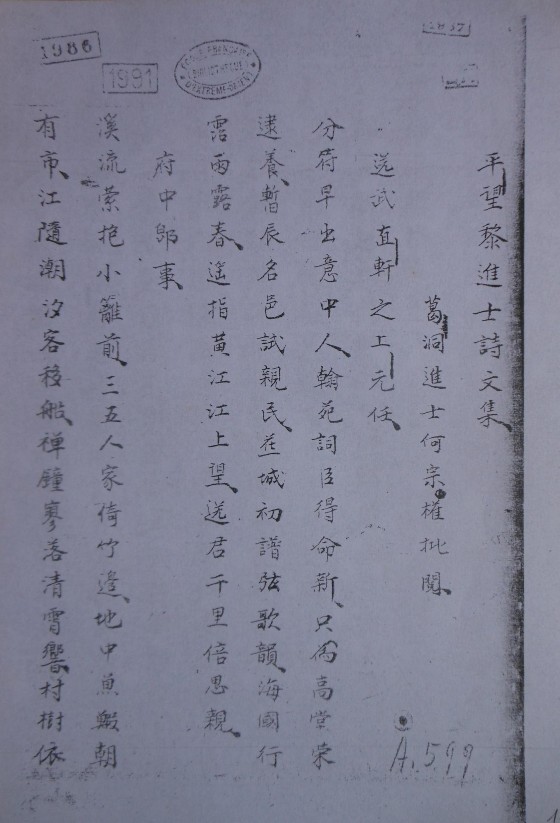 平望黎進士詩文集
葛洞進士何宗權批閱
送武直軒之工元任
分符早出意中人翰苑詞臣得命新只為高堂榮
逮養暫辰名邑試親民花城初譜弦歌韻海國行
霑雨露春遙指黃江江上望送君千里倍思親
府中即事
溪流縈抱小籬前三五人家倚竹邊地中魚蝦朝
有市江隨潮汐客移船禪鐘寥落清霄響村樹依
1986
1991
ECOLE FRANÇAISE
BIBLIOTHEQUE
D'EXTREME-ORIENT
A.599